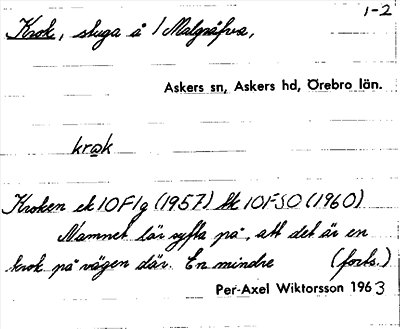 1-2
Krok, stuga å 1 Malgräfva,
Askers sn, Askers hd, Örebro län.
krok
Kroken ek 10F1g (1957) 10F50 (1960)
Namnet lär syfta på, att det är en
krok på vägen där. En mindre (forts.)
Per-Axel Wiktorsson 1963